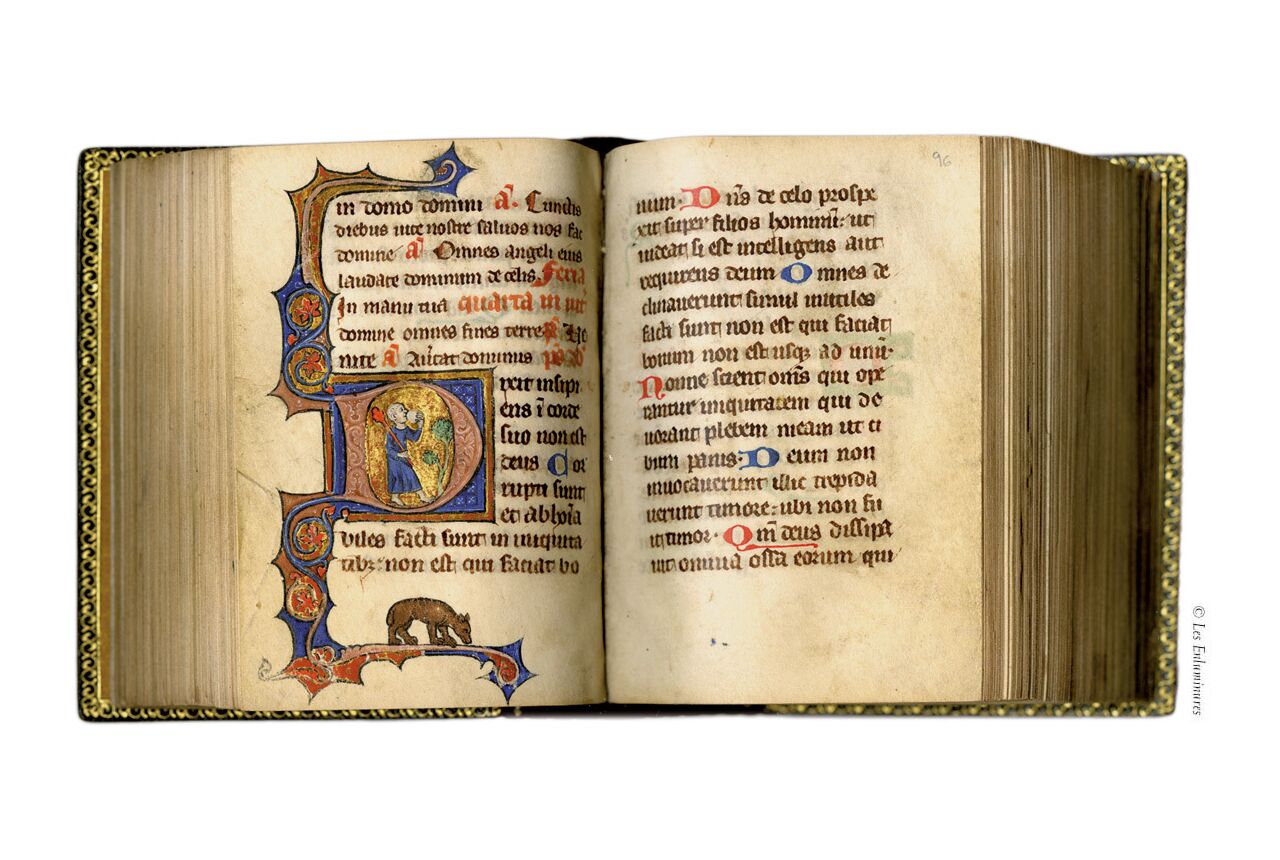 in domo domini a. Cunctis
diebus uite nostre saluos nos fac
domine a Omnes angeli eius
laudate dominum de celis. Feria
In manu tua quarta in uit
domine omnes fines terre. p Ue
nite a Auertat dominus ps d
Dixit insipi
ens i corde
suo non est
deus Cor
rupti sunt
et abhoīa
biles facti sunt in iniquita
tibꝫ: non est qui faciat bo
96
num. Dn̄s de celo prospe
xit super filios hominū: ut
uideat si est intelligens aut
requirens deum Omnes de
clinauerunt simul inutiles
facti sunt non est qui faciat
bonum non est usqꝫ ad unū.
Nonne scient om̄s qui ope
rantur iniquitatem qui de
uorant plebem meam ut ci
bum panis. Deum non
inuocauerunt illic trepida
uerunt timore: ubi non fu
it timor. Qm̄ deus dissipa
uit omnia ossa eorum qui
© Les Enluminures